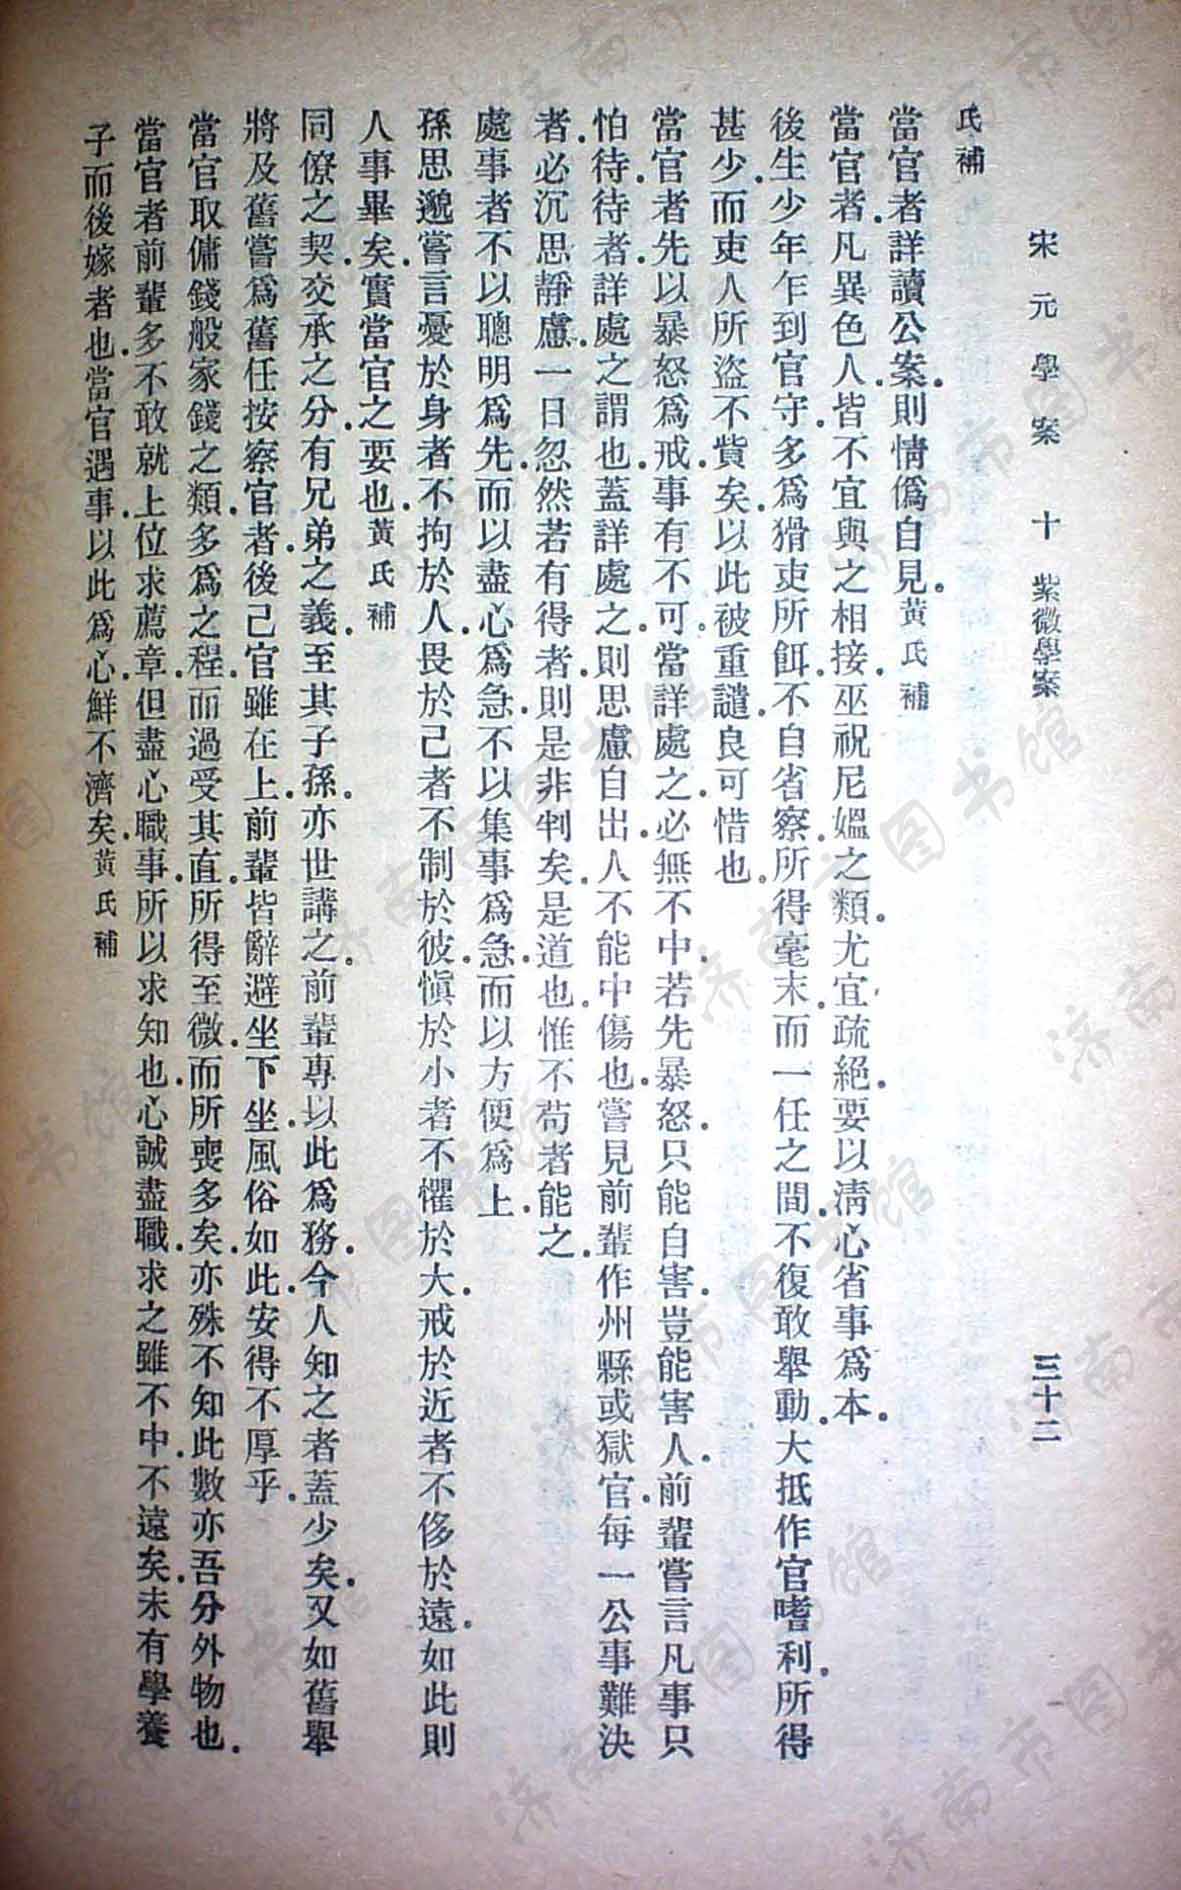 宋元學案 十 紫微學案 三十二
氏補
當官者詳讀公案.則情僞自見.黃氏補
當官者.凡異色人.皆不宜與之相接.巫祝尼媼之類.尤宜疏絕.要以淸心省事爲本.
後生少年乍到官守.多爲猾吏所餌.不自省察.所得毫末.而一任之間.不復敢舉動.大抵作官嗜利.所得
甚少.而吏人所盜不貲矣.以此被重譴.良可惜也.
當官者先以暴怒爲戒.事有不可.當詳處之.必無不中.若先暴怒.只能自害.豈能害人.前輩嘗言凡事只
怕待.待者.詳處之謂也.蓋詳處之.則思慮自出.人不能中傷也.嘗見前輩作州縣或獄官.每一公事難決
者.必沉思靜慮.一日忽然若有得者.則是非判矣.是道也.惟不苟者能之.
處事者不以聰明爲先.而以盡心爲急.不以集事爲急.而以方便爲上.
孫思邈嘗言.憂於身者不拘於人.畏於己者不制於彼.愼於小者不懼於大.戒於近者不侈於遠.如此則
人事畢矣.實當官之要也.黃氏補
同僚之契.交承之分.有兄弟之義.至其子孫.亦世講之.前輩專以此爲務.今人知之者蓋少矣.又如舊舉
將及舊嘗爲舊任按察官者.後己官雖在上.前輩皆辭避坐下坐.風俗如此.安得不厚乎.
當官取傭錢般家錢之類.多爲之程.而過受其直.所得至微.而所喪多矣.亦殊不知此數亦吾分外物也.
當官者前輩多不敢就上位求薦章.但盡心職事.所以求知也.心誠盡職.求之雖不中.不遠矣.未有學養
子而後嫁者也.當官遇事.以此爲心.鮮不濟矣.黃氏補